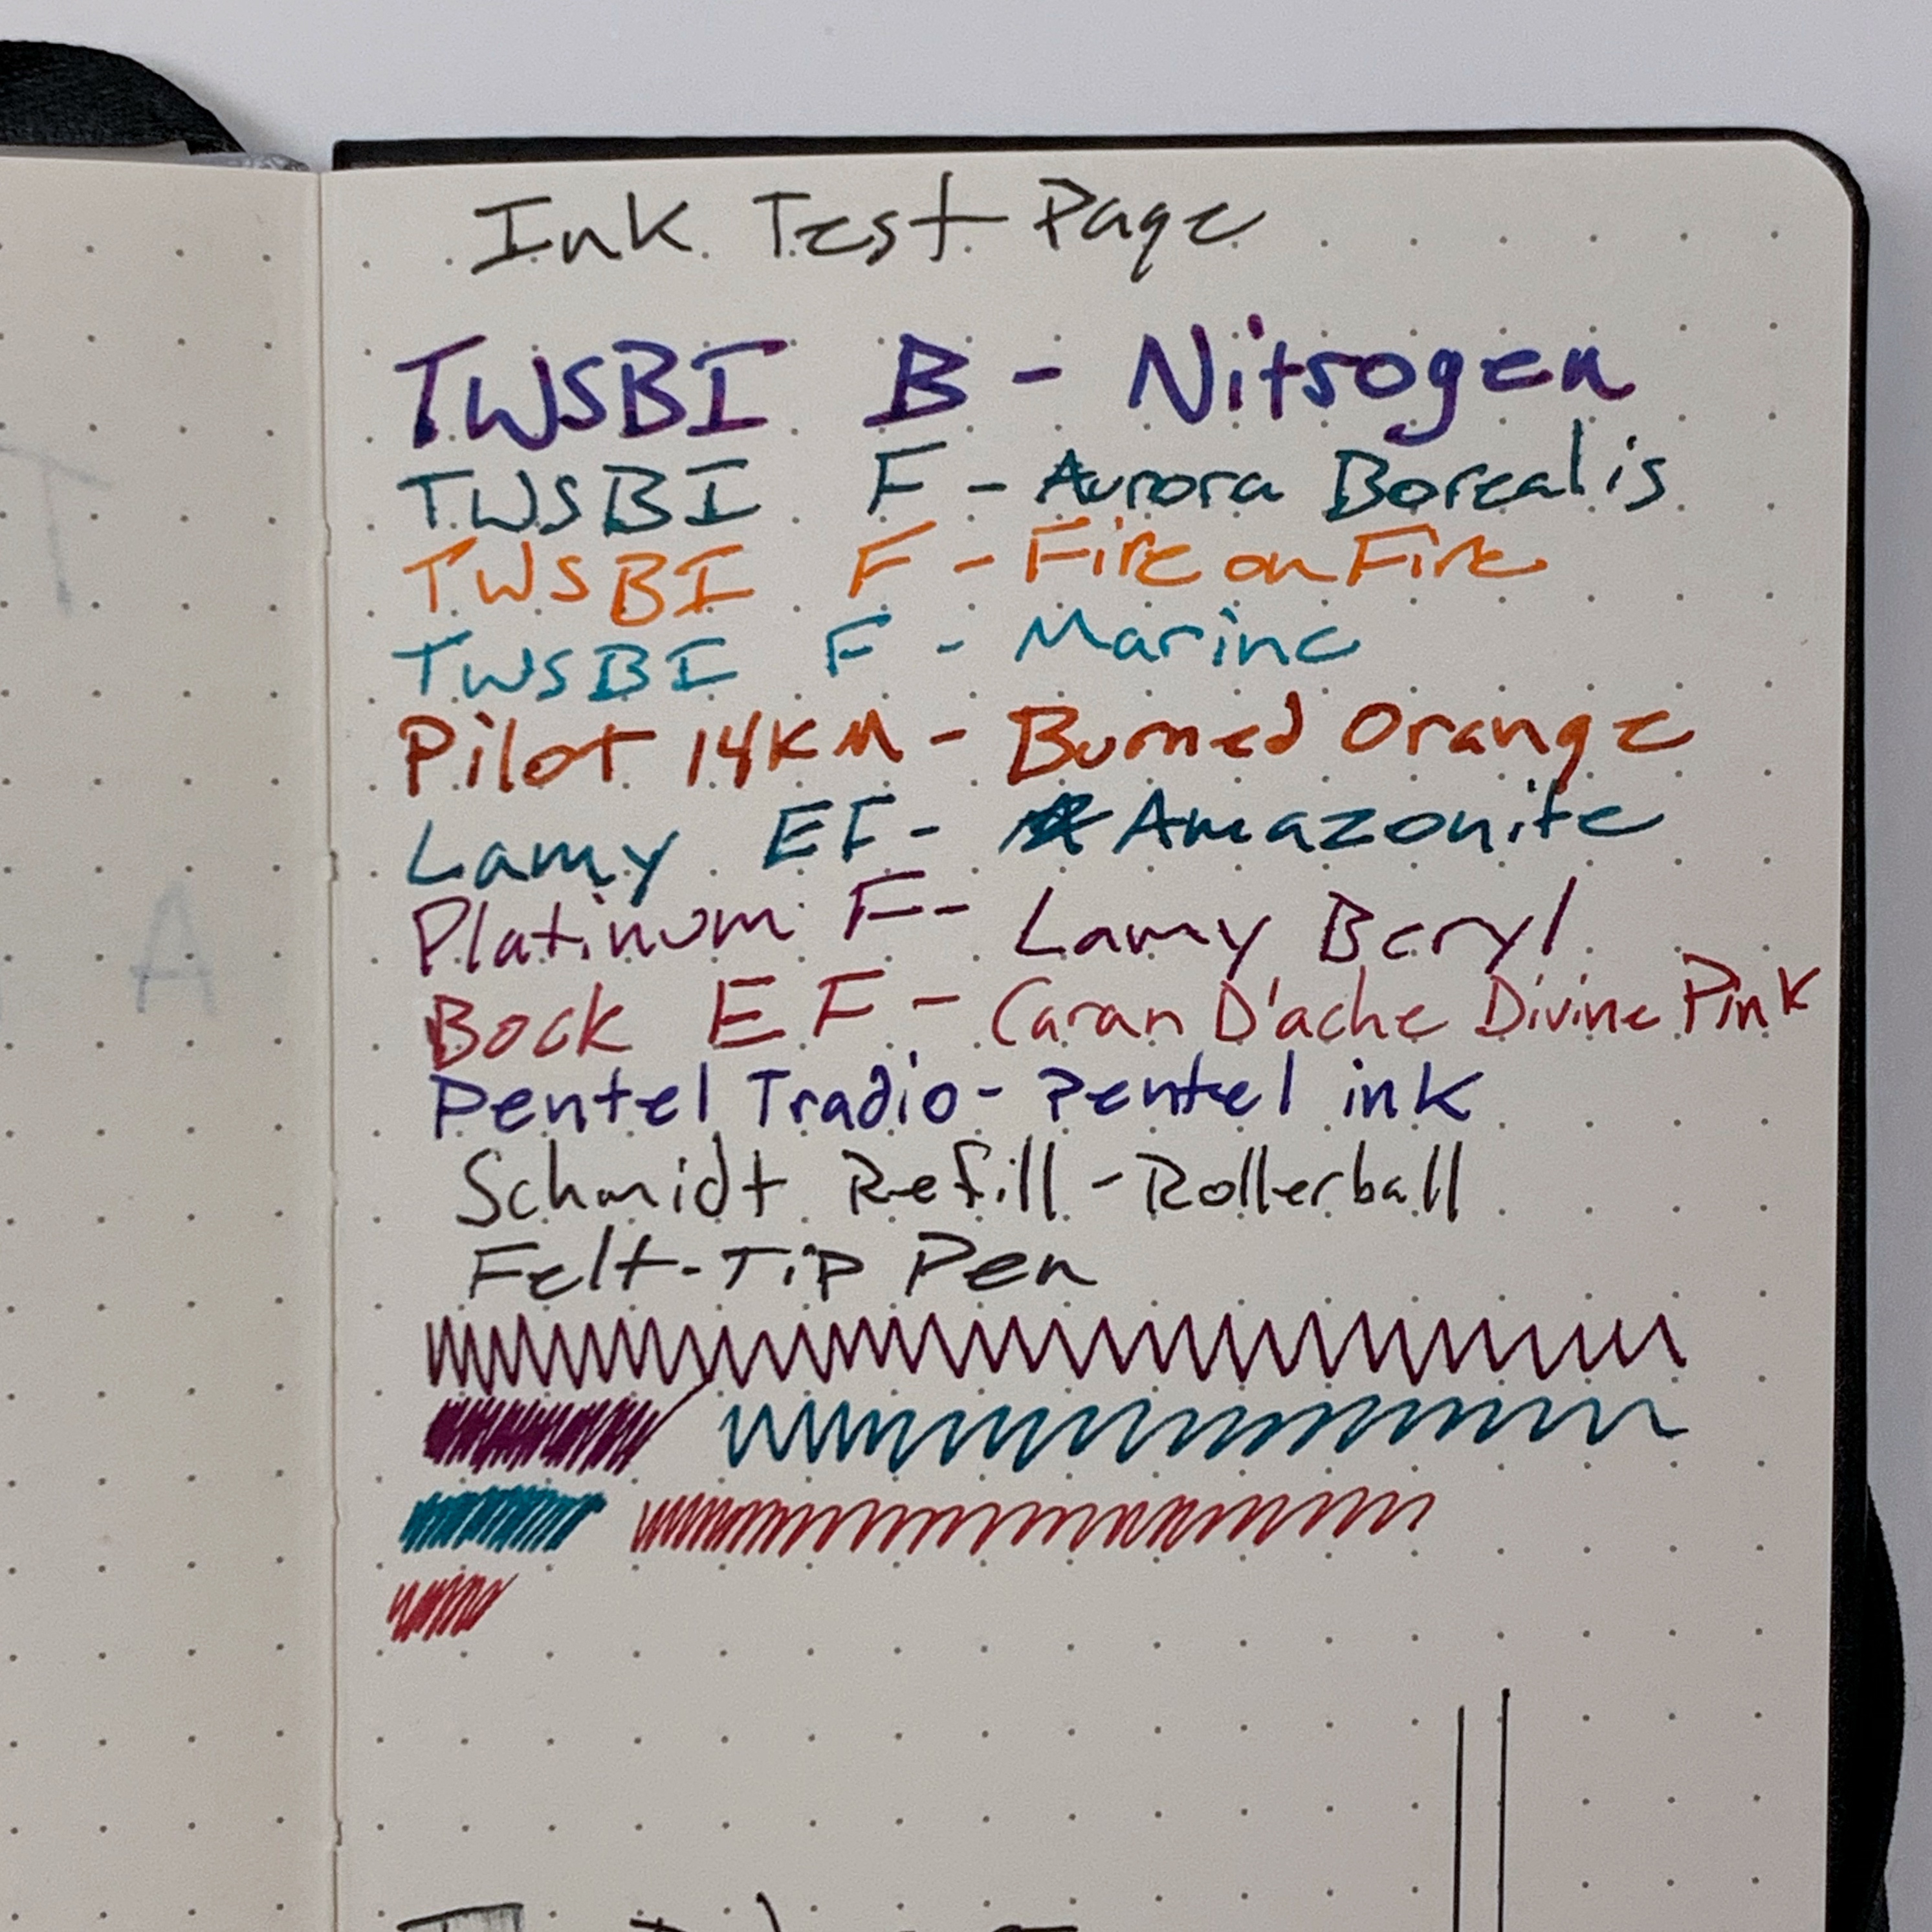 Ink Test Page
TWSBI B - Nitrogen
TWSBI F - Aurora Borealis
TWSBI F - Fire on Fire
TWSBI F - Marine
Pilot 14K M - Burned Orange
Lamy EF - Amazonite
Platinum F - Lamy Beryl
Bock EF - Caran D'ache Divine Pink
Pentel Tradio - Pentel ink
Schmidt Refill - Rollerball
Felt-Tip Pen
T
A